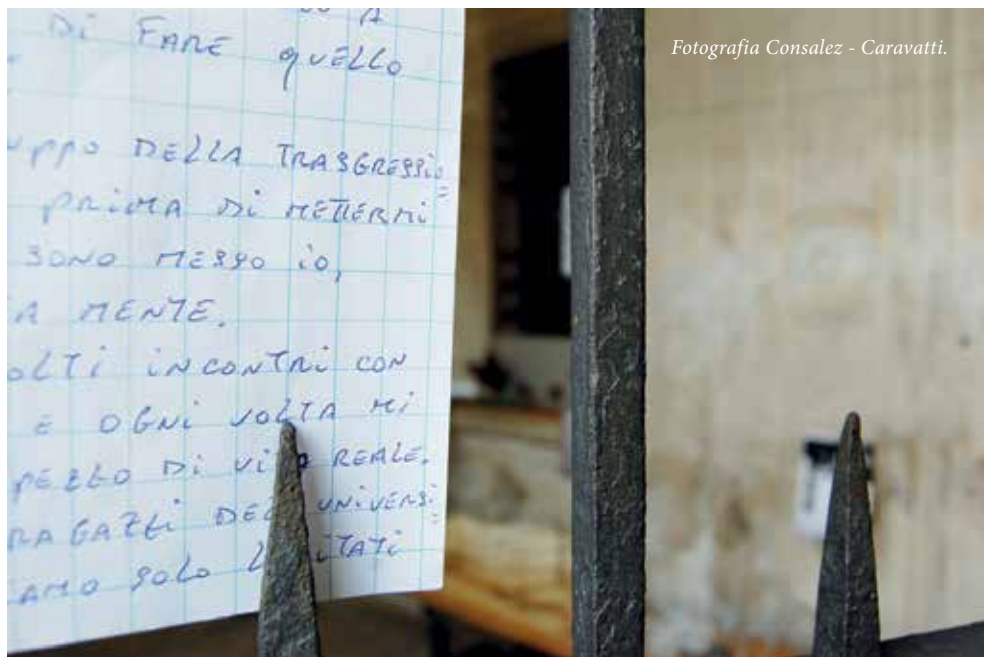 Fotografia Consalez - Caravatti.
A
DI FARE QUELLO
UPPO DELLA TRASGRESSIO=
PRIMA DI METTERMI
SONO MESSO IO,
A MENTE.
OLTI INCONTRI CON
E OGNI VOLTA MI
PEZZO DI VI REALE.
RAGAZZI DEL UNIVERSI=
AMO SOLO L ITATI